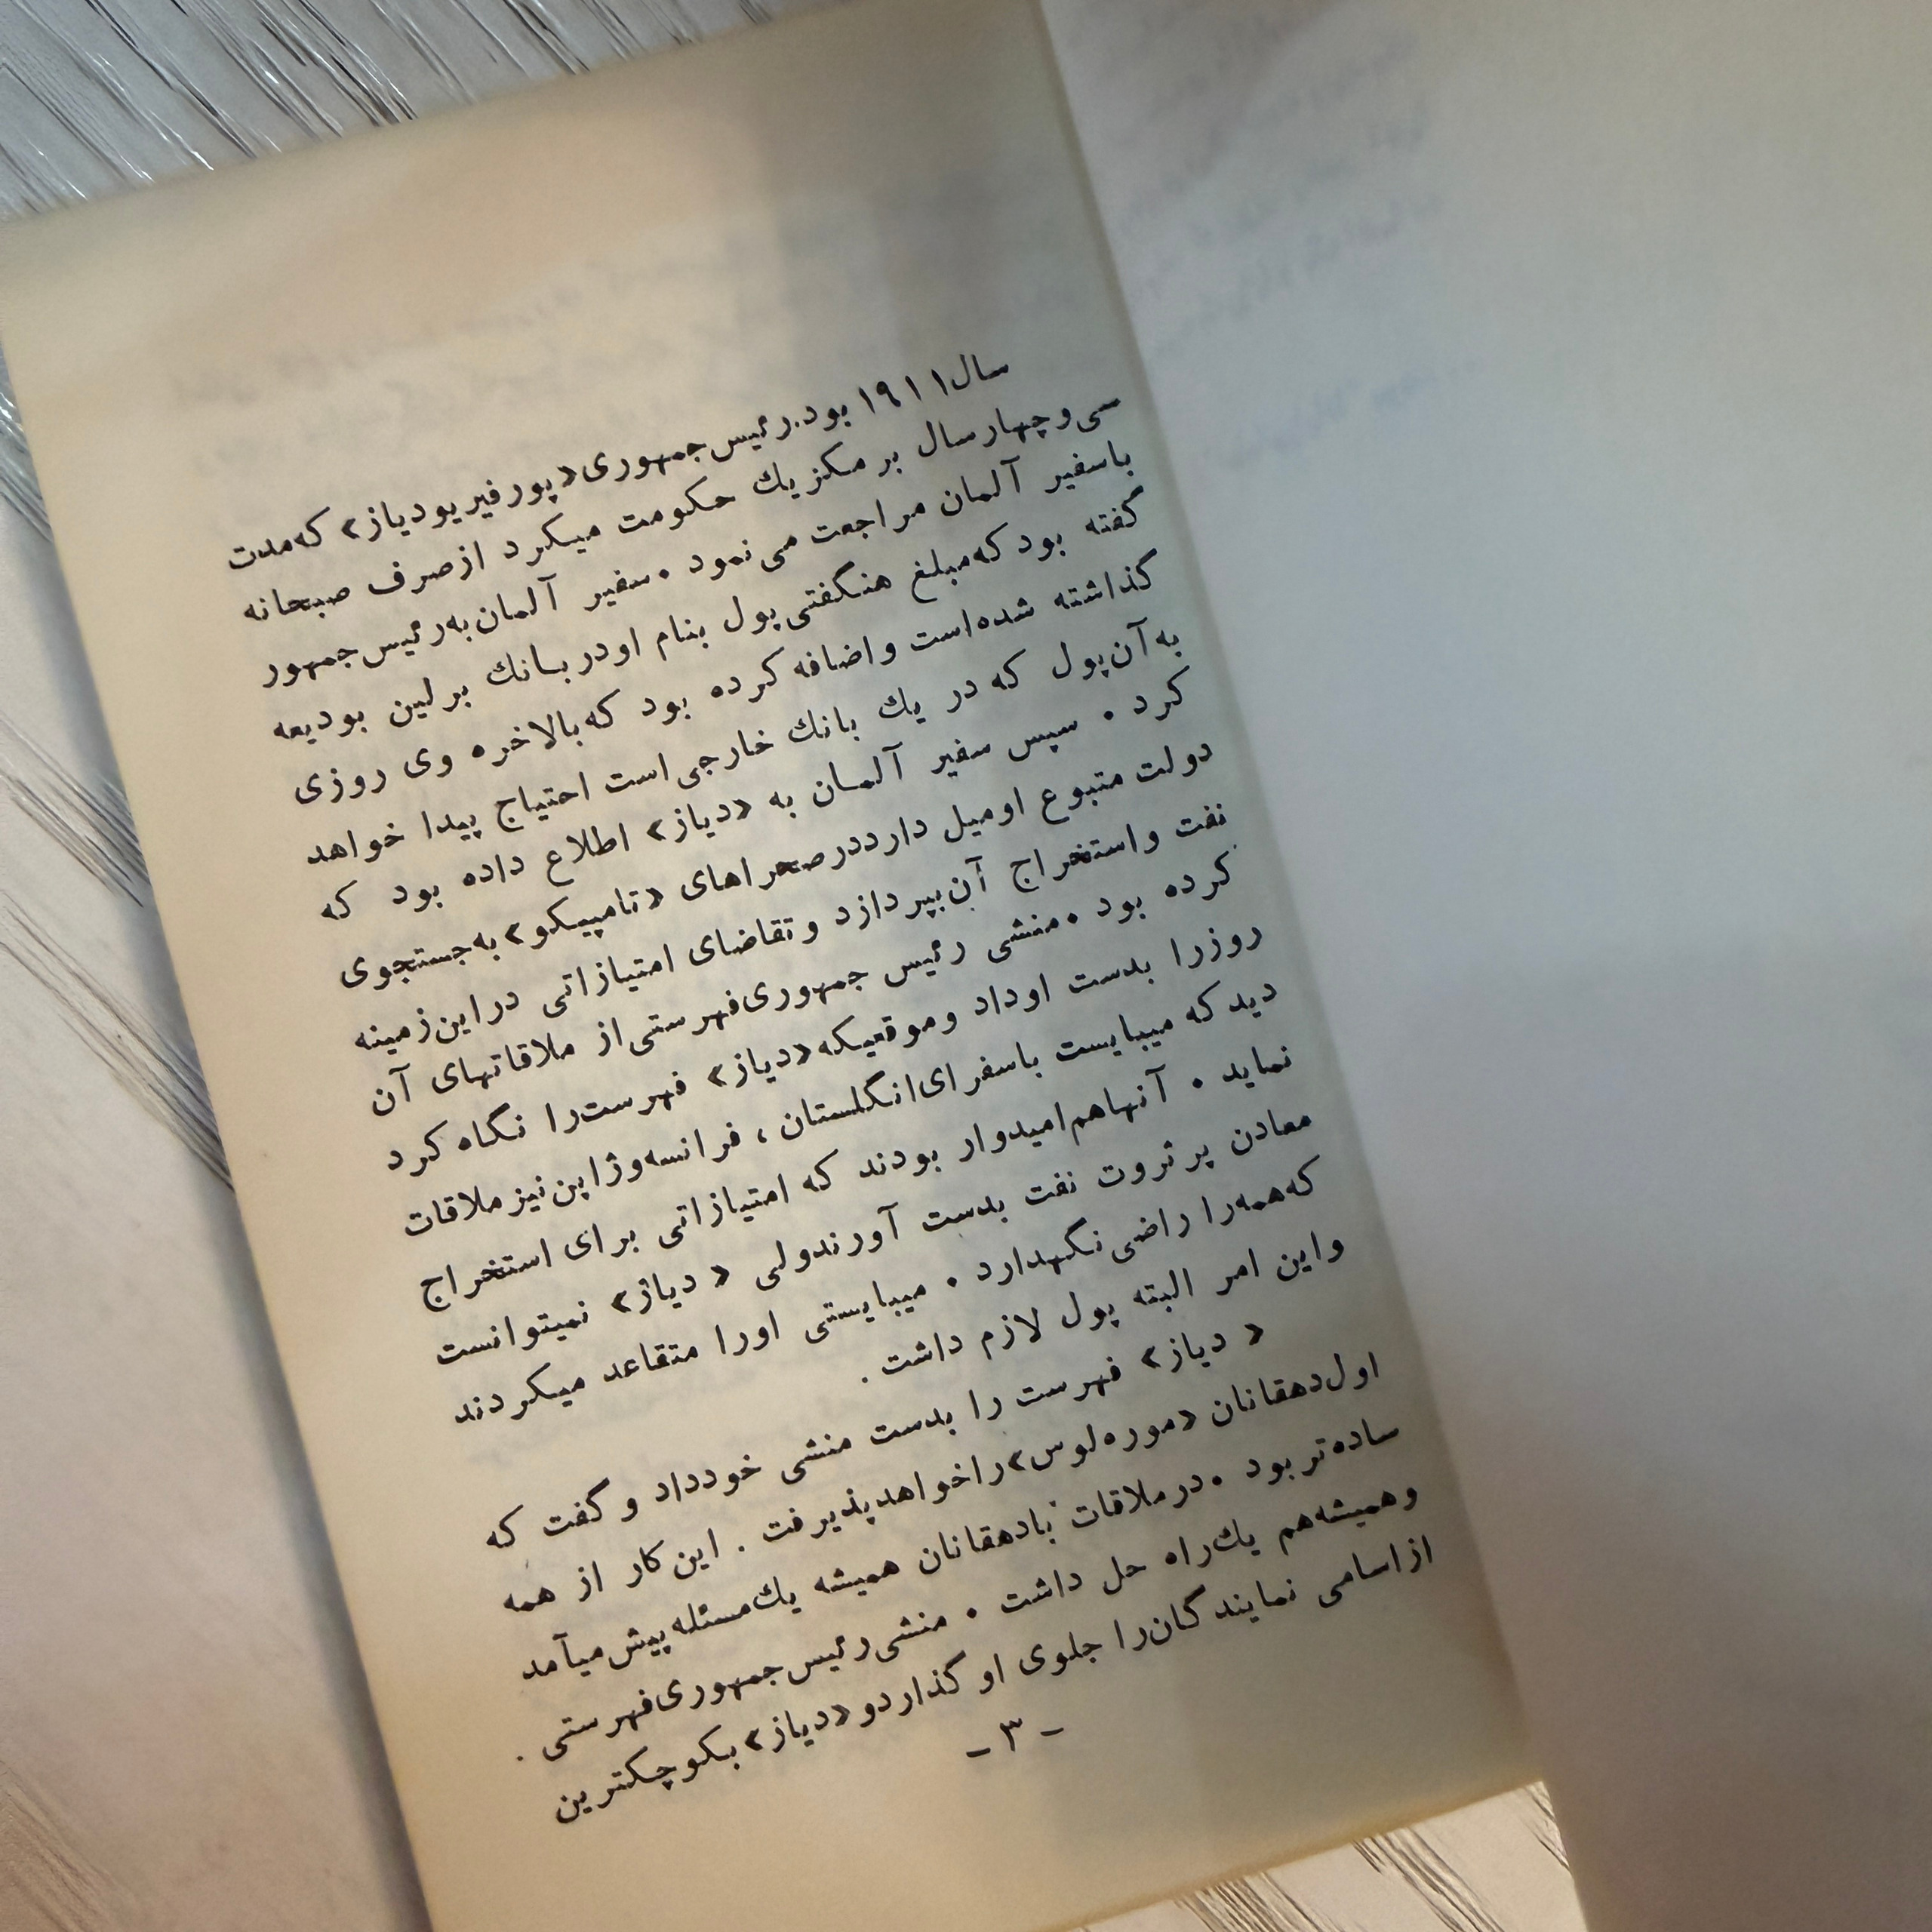 سال ۱۹۱۱ بود. رئیس جمهوری «پورفیریودیاز» که مدت
سی و چهار سال بر مکزیك حکومت میکرد از صرف صبحانه
با سفیر آلمان مراجعت می نمود . سفیر آلمان به رئیس جمهور
گفته بود که مبلغ هنگفتی پول بنام او در بانك برلین بودیعه
گذاشته شده است و اضافه کرده بود که بالاخره وی روزی
به آن پول که در یك بانك خارجی است احتیاج پیدا خواهد
کرد . سپس سفیر آلمان به «دیاز» اطلاع داده بود که
دولت متبوع او میل دارد در صحراهای «تامپیکو» به جستجوی
نفت و استخراج آن بپردازد و تقاضای امتیازاتی در این زمینه
کرده بود . منشی رئیس جمهوری فهرستی از ملاقاتهای آن
روز را بدست او داد و موقعیکه «دیاز» فهرست را نگاه کرد
دید که میبایست با سفرای انگلستان ، فرانسه و ژاپن نیز ملاقات
نماید . آنها هم امیدوار بودند که امتیازاتی برای استخراج
معادن پر ثروت نفت بدست آورند ولی « دیاز» نمیتوانست
که همه را راضی نگهدارد . میبایستی او را متقاعد میکردند
و این امر البته پول لازم داشت .
« دیاز» فهرست را بدست منشی خود داد و گفت که
اول دهقانان «موره لوس» را خواهد پذیرفت . این کار از همه
ساده تر بود . در ملاقات با دهقانان همیشه یك مسئله پیش میآمد
و همیشه هم یك راه حل داشت . منشی رئیس جمهوری فهرستی .
از اسامی نمایندگان را جلوی او گذارد و «دیاز» بکوچکترین
- ۳ -